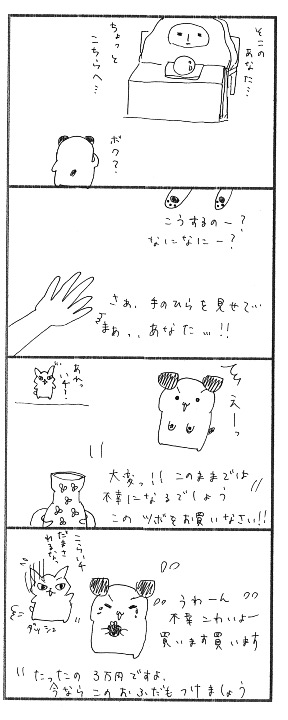 そこの
あなた…
ちょっと
こちらへ…
ボク?
こうするのー?
なになにー?
さぁ、手のひらを見せてぃ…
まぁっ、あなた…!!
えーっ
あれっ
いチ!
大変っ!! このままでは
不幸になるでしょう
このツボをお買いなさい!!
こらいチ
だまさ
れるな、
ダッシュ
うわーん
不幸こわいよー
買います買います
たったの3万円ですよ。
今ならこのおふだもつけましょう